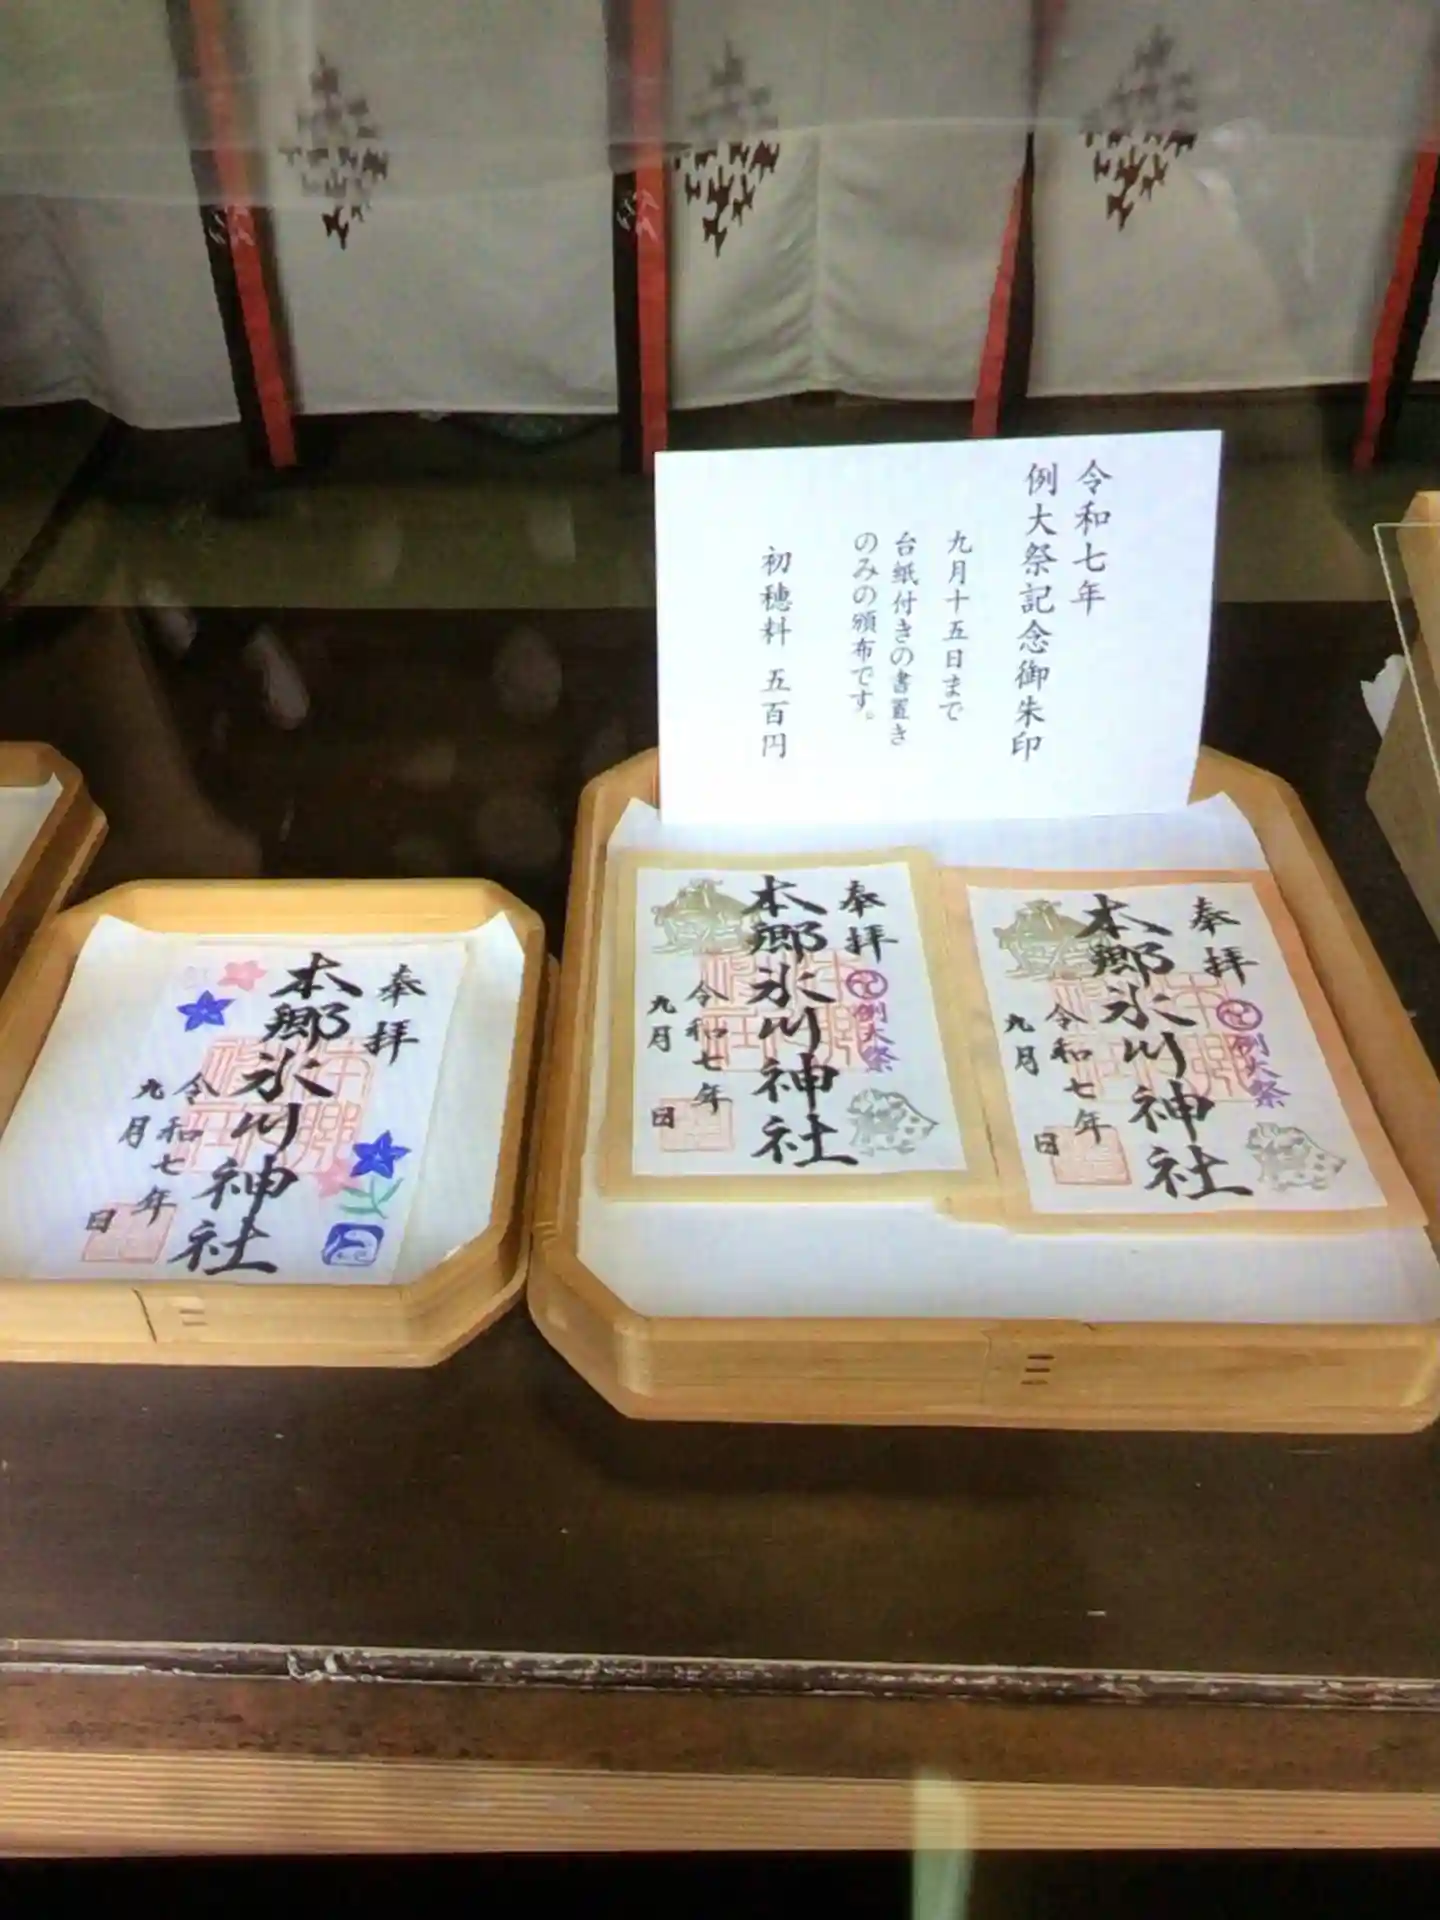 令和七年
例大祭記念御朱印
九月十五日まで
台紙付きの書置き
のみの頒布です。
初穂料 五百円
奉拝
本郷氷川神社
令和七年
九月 日
奉拝
例大祭
本郷氷川神社
令和七年
九月 日
奉拝
例大祭
本郷氷川神社
令和七年
九月 日